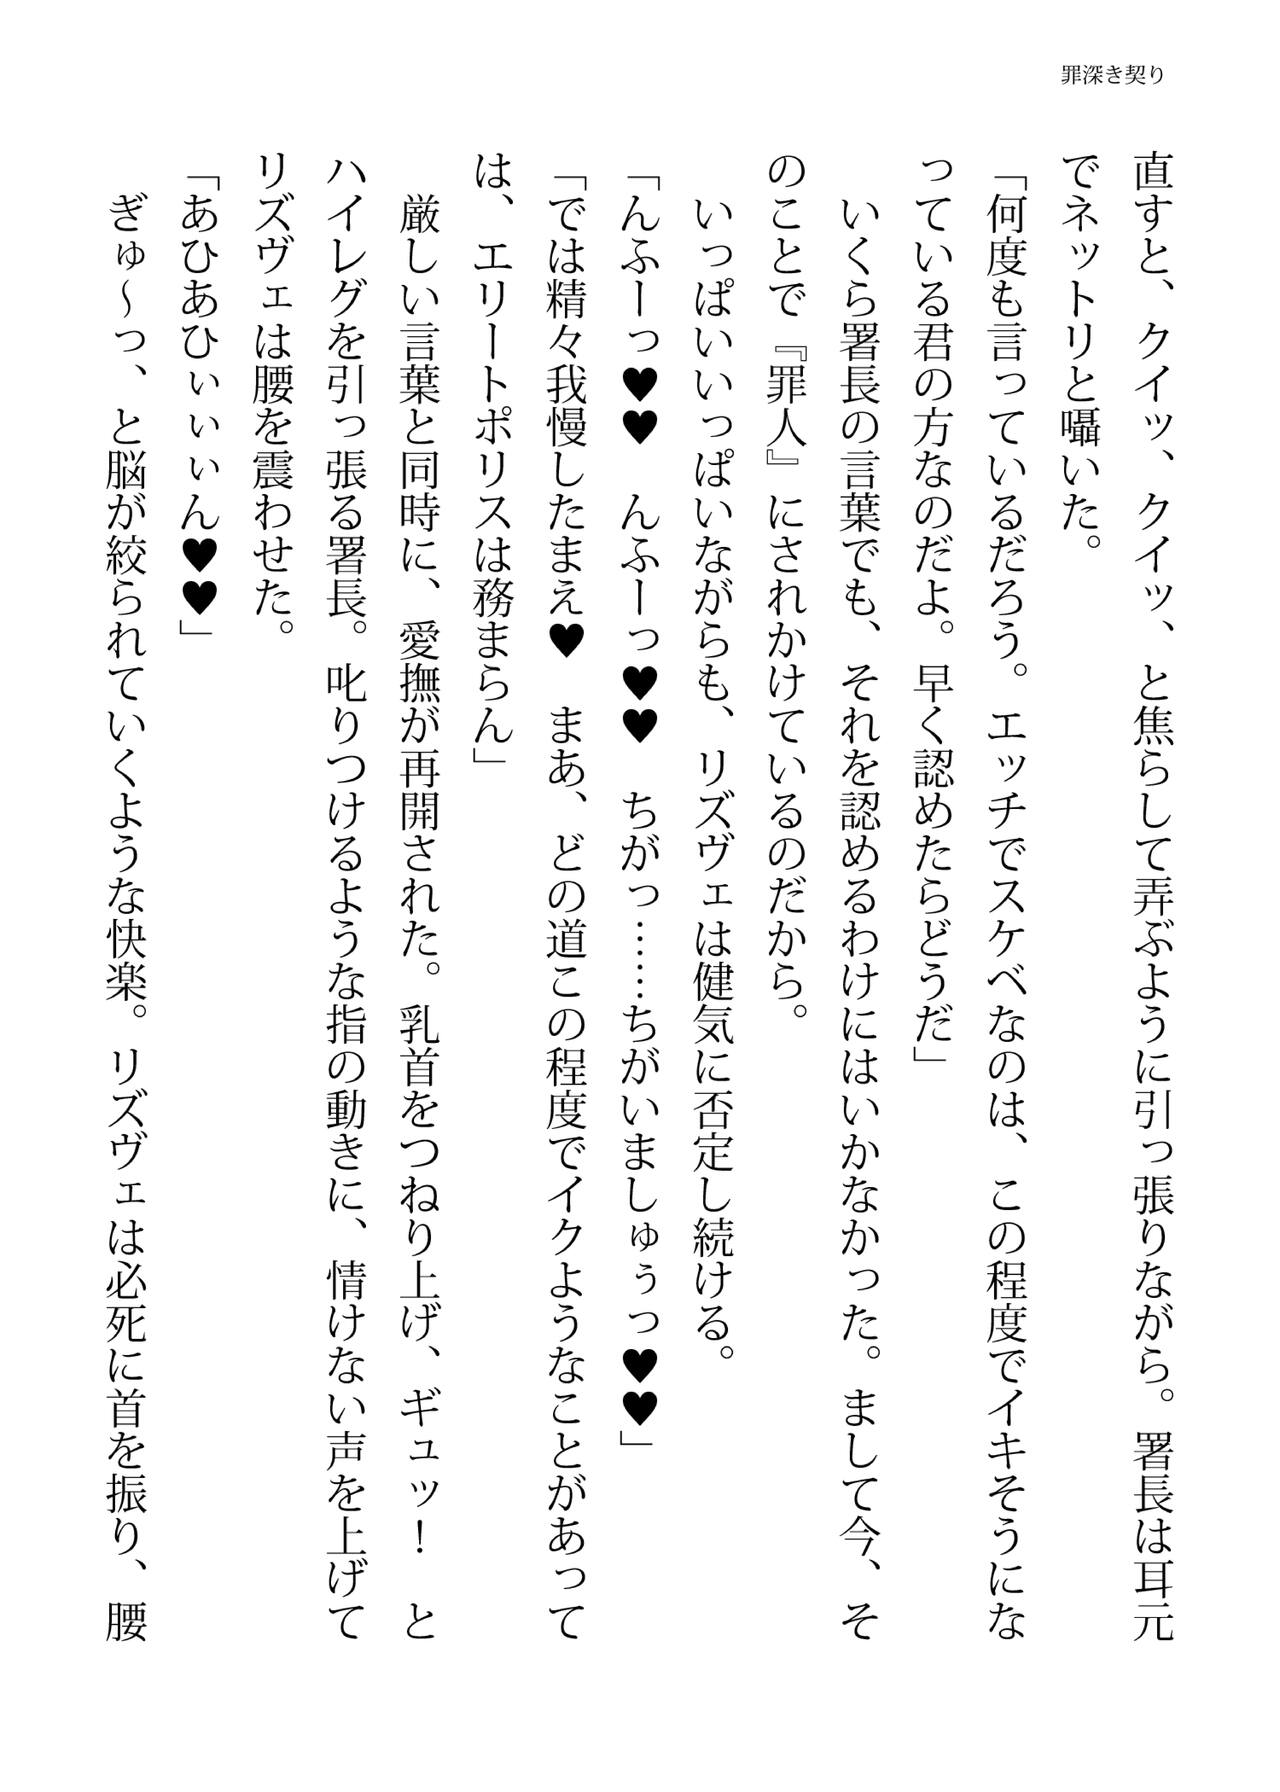 罪深き契り
直すと、クイッ、クイッ、と焦らして弄ぶように引っ張りながら。署長は耳元
でネットリと囁いた。
「何度も言っているだろう。エッチでスケベなのは、この程度でイキそうにな
っている君の方なのだよ。早く認めたらどうだ」
　いくら署長の言葉でも、それを認めるわけにはいかなかった。まして今、そ
のことで『罪人』にされかけているのだから。
　いっぱいいっぱいながらも、リズヴェは健気に否定し続ける。
「んふーっ♥♥　んふーっ♥♥　ちがっ……ちがいましゅぅっ♥♥」
「では精々我慢したまえ♥　まあ、どの道この程度でイクようなことがあって
は、エリートポリスは務まらん」
　厳しい言葉と同時に、愛撫が再開された。乳首をつねり上げ、ギュッ！　と
ハイレグを引っ張る署長。叱りつけるような指の動きに、情けない声を上げて
リズヴェは腰を震わせた。
「あひあひぃぃぃん♥♥」
　ぎゅ～っ、と脳が絞られていくような快楽。リズヴェは必死に首を振り、腰